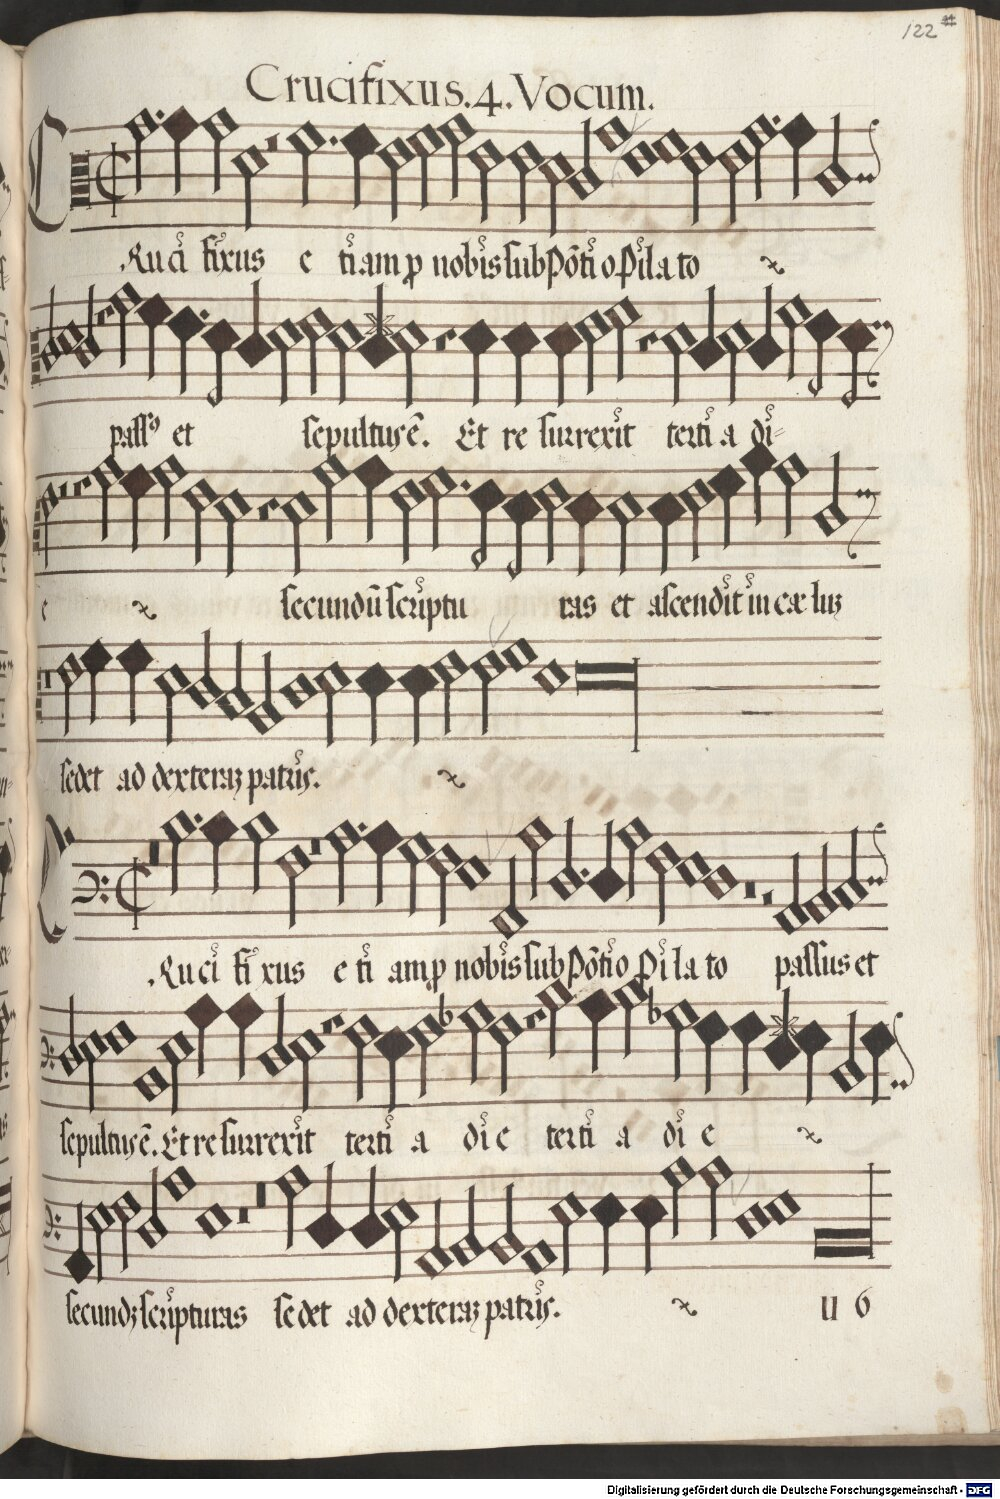 122
Crucifixus. 4. Vocum.
CRuci fixus e tiam ꝓ nobis sub Põti o Pila to
passꝰ et sepultus ē. Et re surrexit terti a di-
e secundũ scriptu ras et ascendit in cæ luz
sedet ad dexteraz patris.
CRuci fi xus e ti am ꝓ nobis sub Põtio Pi la to passus et
sepultus ē. Et re surrexit terti a di e terti a di e
secundz scripturas se det ad dexteraz patris.
u 6
Digitalisierung gefördert durch die Deutsche Forschungsgemeinschaft - DFG